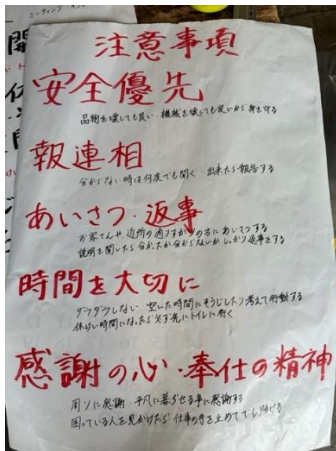 ミーティング
開
注意事項
安全優先
品物を壊しても良い 機械を壊しても良いから身を守る
報連相
分からない時は何度でも聞く 出来たら報告する
あいさつ・返事
お客さんや、近所の通りすがりの方にあいさつする
説明を聞いたら分かったか分からないか しっかり返事をする
時間を大切に
ダラダラしない 空いた時間にそうじしたり考えて行動する
休けい時間になったら必ず先にトイレに行く
感謝の心・奉仕の精神
周りに感謝 平凡に暮らせる事に感謝する
困っている人を見かけたら仕事の手を止めてでも助ける